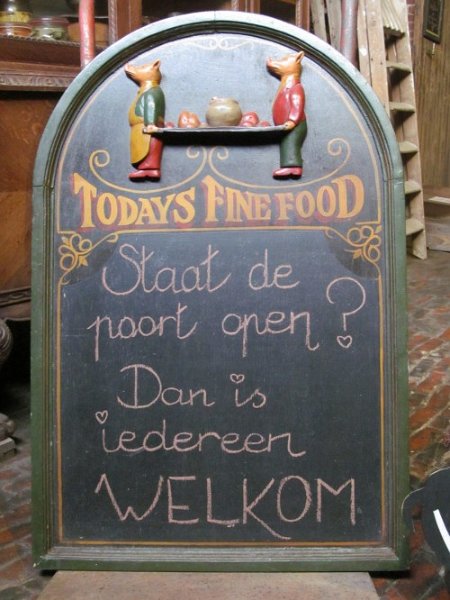 TODAYS FINE FOOD
Staat de
poort open?
Dan is
iedereen
WELKOM